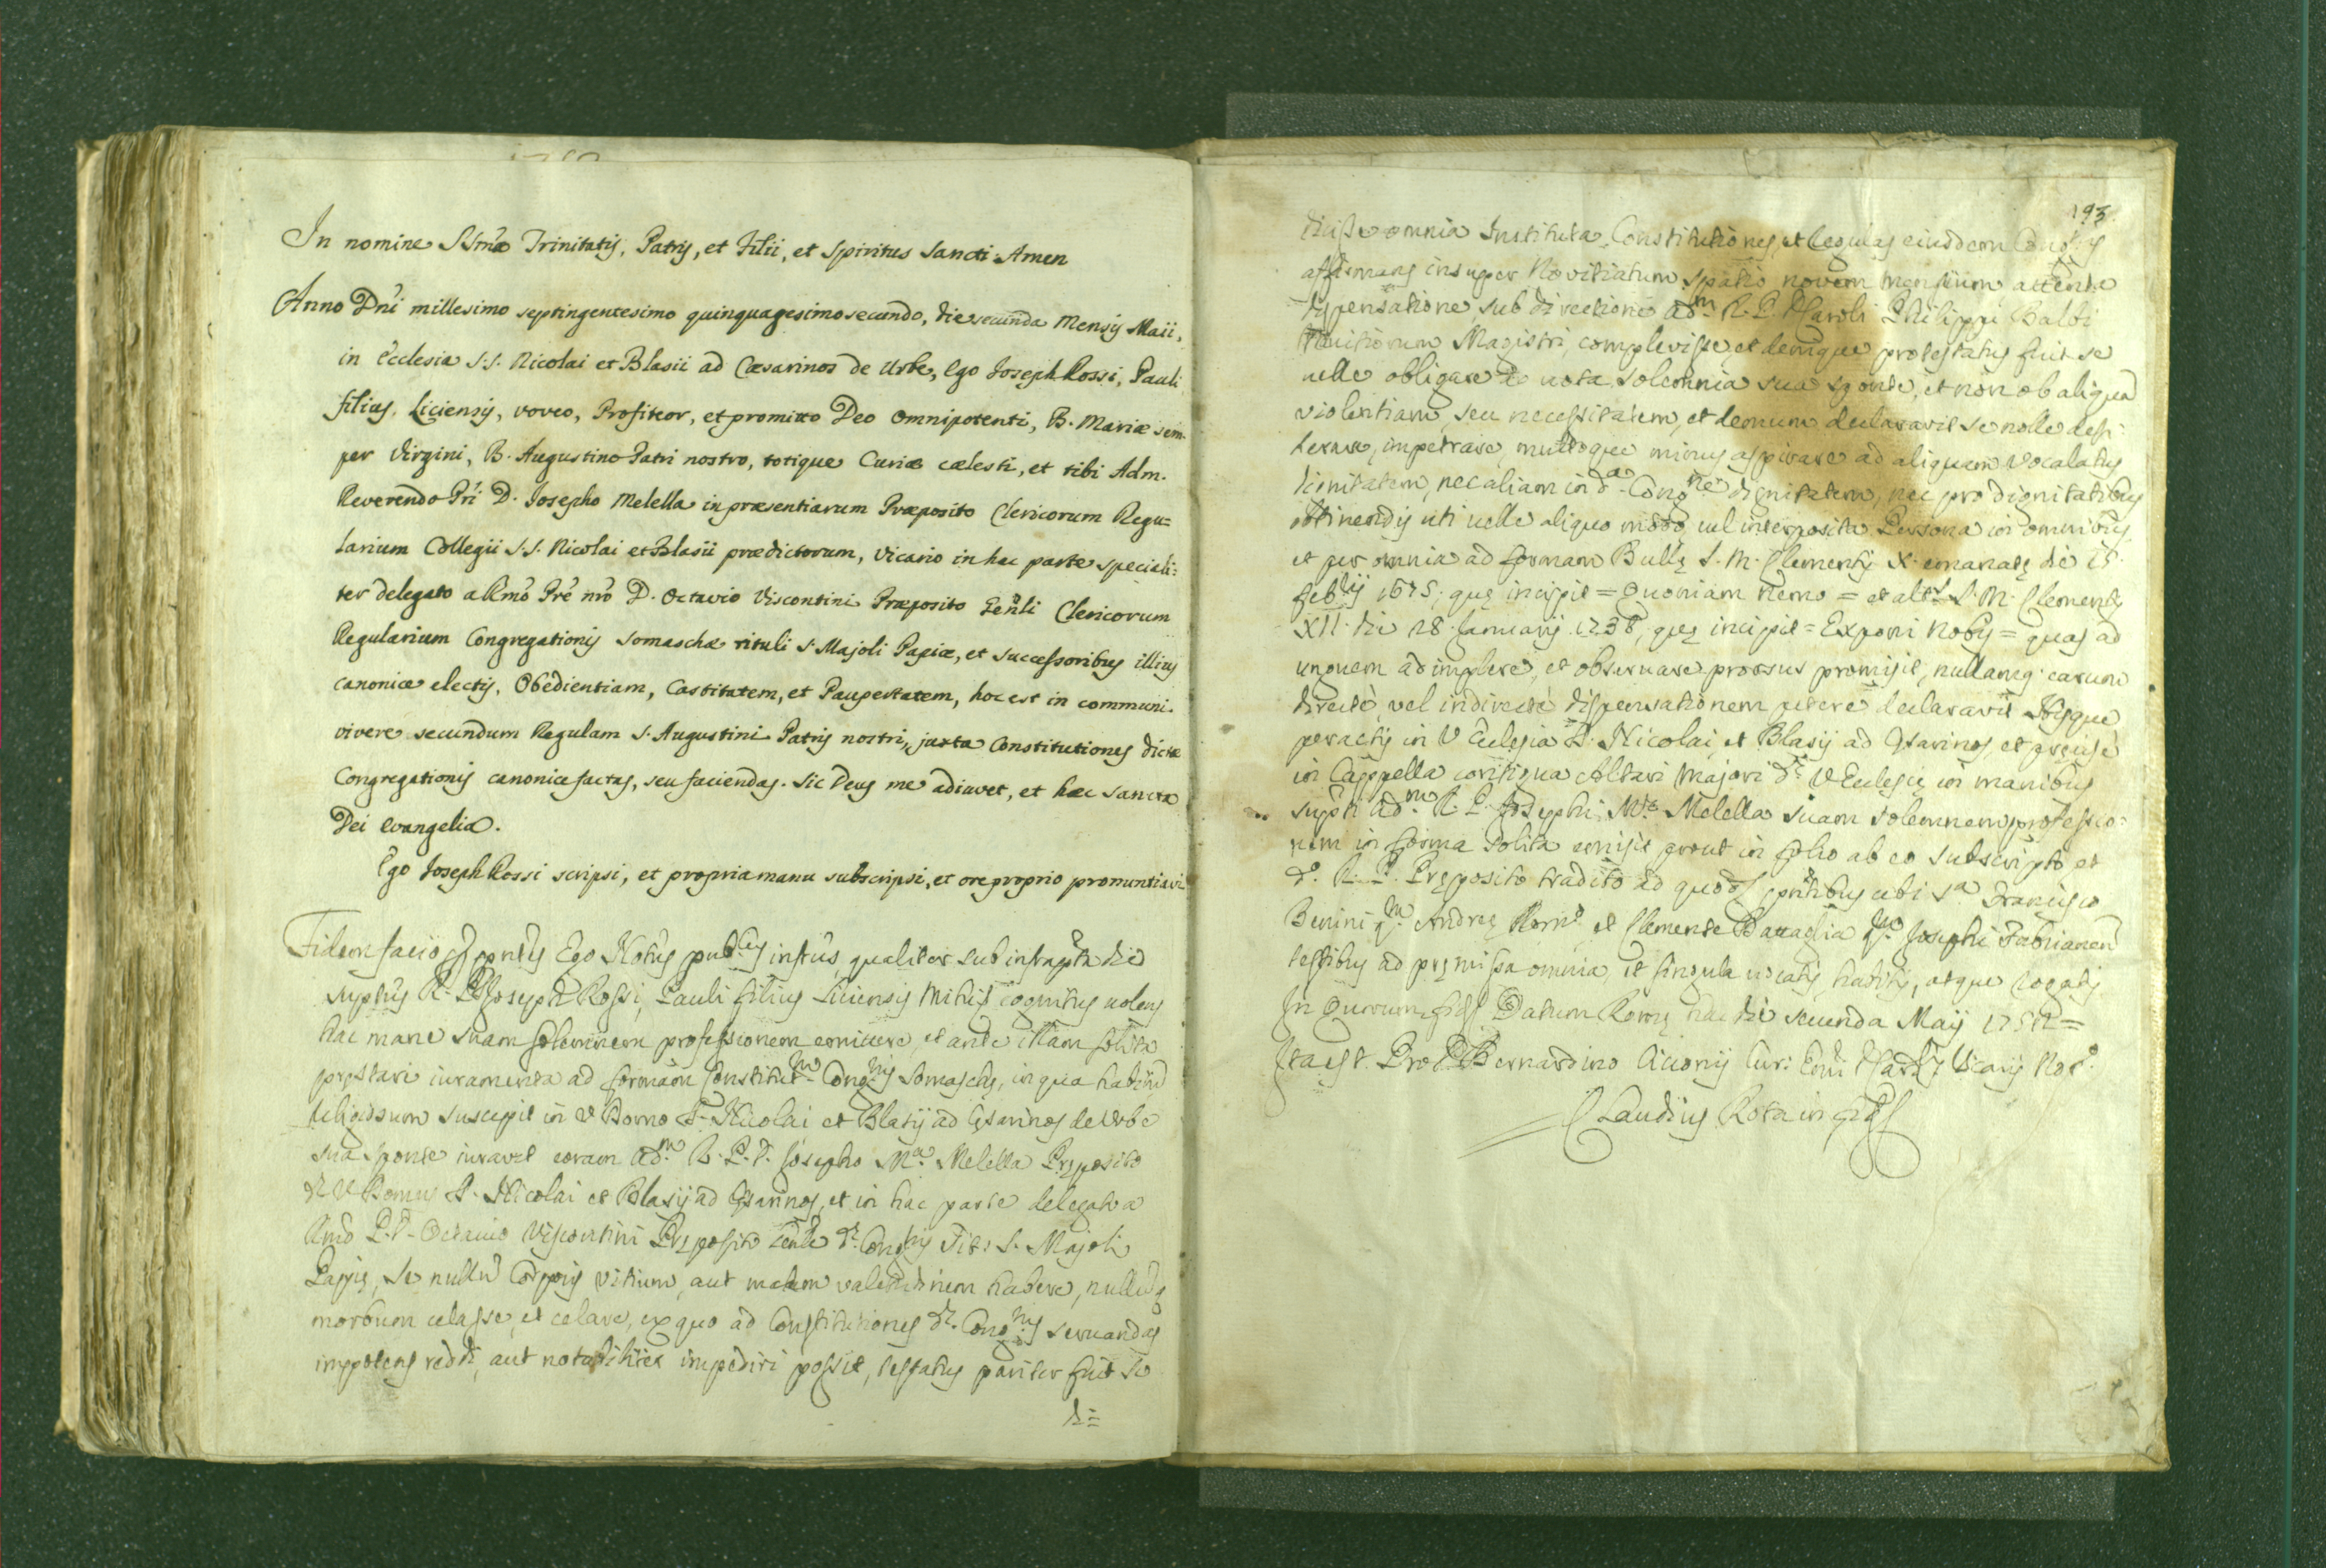 In nomine SSmæ Trinitatis, Patris, et Filii, et Spiritus Sancti Amen
Anno Dñi millesimo septingentesimo quinquagesimo secundo, die secunda Mensis Maii,
in Ecclesia S.S. Nicolai et Blasii ad Cæsarinos de Urbe, Ego Joseph Rossi, Pauli
filius, Liciensis, voveo, Profiteor, et promitto Deo Omnipotenti, B. Mariæ sem-
per Virgini, B. Augustino Patri nostro, totique Curiæ cælesti, et tibi Adm.
Reverendo Pri D. Josepho Melella in præsentiarum Præposito Clericorum Regu=
larium Collegii S.S. Nicolai et Blasii prædictorum, Vicario in hac parte speciali:
ter delegato a Rmo Pre nro D. Octavio Viscontini Præposito Genli Clericorum
Regularium Congregationis Somaschæ tituli S. Majoli Papiæ, et successoribus illius
canonice electis, Obedientiam, Castitatem, et Paupertatem, hoc est in communi
vivere secundum Regulam S. Augustini Patris nostri, juxta Constitutiones dictæ
Congregationis canonice factas, seu faciendas. Sic Deus me adiuvet, et hæc sancta
Dei Evangelia.
Ego Joseph Rossi scripsi, et propria manu subscripsi, et ore proprio pronuntiavi
Fidem facio Ego Notus pubcus infrus qualiter sub infrapta die
suptus R. P. D. Joseph Rossi, Pauli filius Liciensis mihi cognitus volens
hac mane suam solemnem professionem emittere, et ante illam solita
prestari iuramenta ad formam Constitutm Congnis Somaschę, in qua habitũ
religiosum suscepit in V Domo S. Nicolai et Blasij ad Cęsarinos de Urbe
sua sponte iuravit coram adm R. P. D. Josepho Ma Melella Pręposito
dę V Domus S. Nicolai et Blasij ad Cęsarinos, et in hac parte delegato a
Rmo P. D. Octavio Viscontini Pręposito Genle dę Congnis Titi S. Majoli
Papię, se nullũ Corporis vitium, aut malam valetudinem habere, nullũq
morbum celasse, et celare, ex quo ad Constitutiones dę Congnis servandas
impotens reddi, aut notabiliter impediri possit, testatus pariter fuit se
di=
193.
didisse omnia Instituta, Constitutiones, et Regulas eiusdem Congnis
affirmans insuper Novitiatum spatio novem mensium attenta
dispensatione sub directione adm R. P. D. Caroli Philippi Balbi
Novitiorum Magistri, complevisse, et denique protestatus fuit se
velle obligare ad vota solemnia sua sponte, et non ob aliquã
violentiam, seu necessitatem, et demum declaravit se nolle desi-
derare, impetrare, multoque minus aspirare ad aliquam Vocalatus
dignitatem, nec aliam in da Congne dignitatem, nec pro dignitatibus
obtinendis uti velle aliquo modo vel interposita Persona in omnibus
et per omnia ad formam Bullę S. M. Clementis X. emanatę die 15.
Febrij 1675, quę incipit = Quoniam Nemo = et altę S. M. Clementis
XII. die 28 Januarij 1738, quę incipit = Exponi Nobis = quas ad
unguem adimplere, et observare prorsus promisit, nullamq. earum
directè, vel indirectè dispensationem petere declaravit Hisque
peractis in V Ecclesia S. Nicolai, et Blasij ad Cęsarinos, et precisè
in Cappella contigua Altari Majori dę V Ecclesię in manibus
supti adm R. P. Josephi Mę Melella suam solemnem professio=
nem in forma solita emisit prout in folio ab eo subscripto et
do R. P. Pręposito tradito ad quod pntibus ubi Francisco
Benini qm Andreę Rom et Clemente Battaglia qm Josephi Fabrianen
testibus ad pręmissa omnia, et singula vocatis, habitis, atque rogatis
In Quorum Datum Romę hac die secunda Maij 1752 =
Ita est Pro D. Bernardino Cicconij Curi Emi Vicarij Not.
Claudius Rota in fid